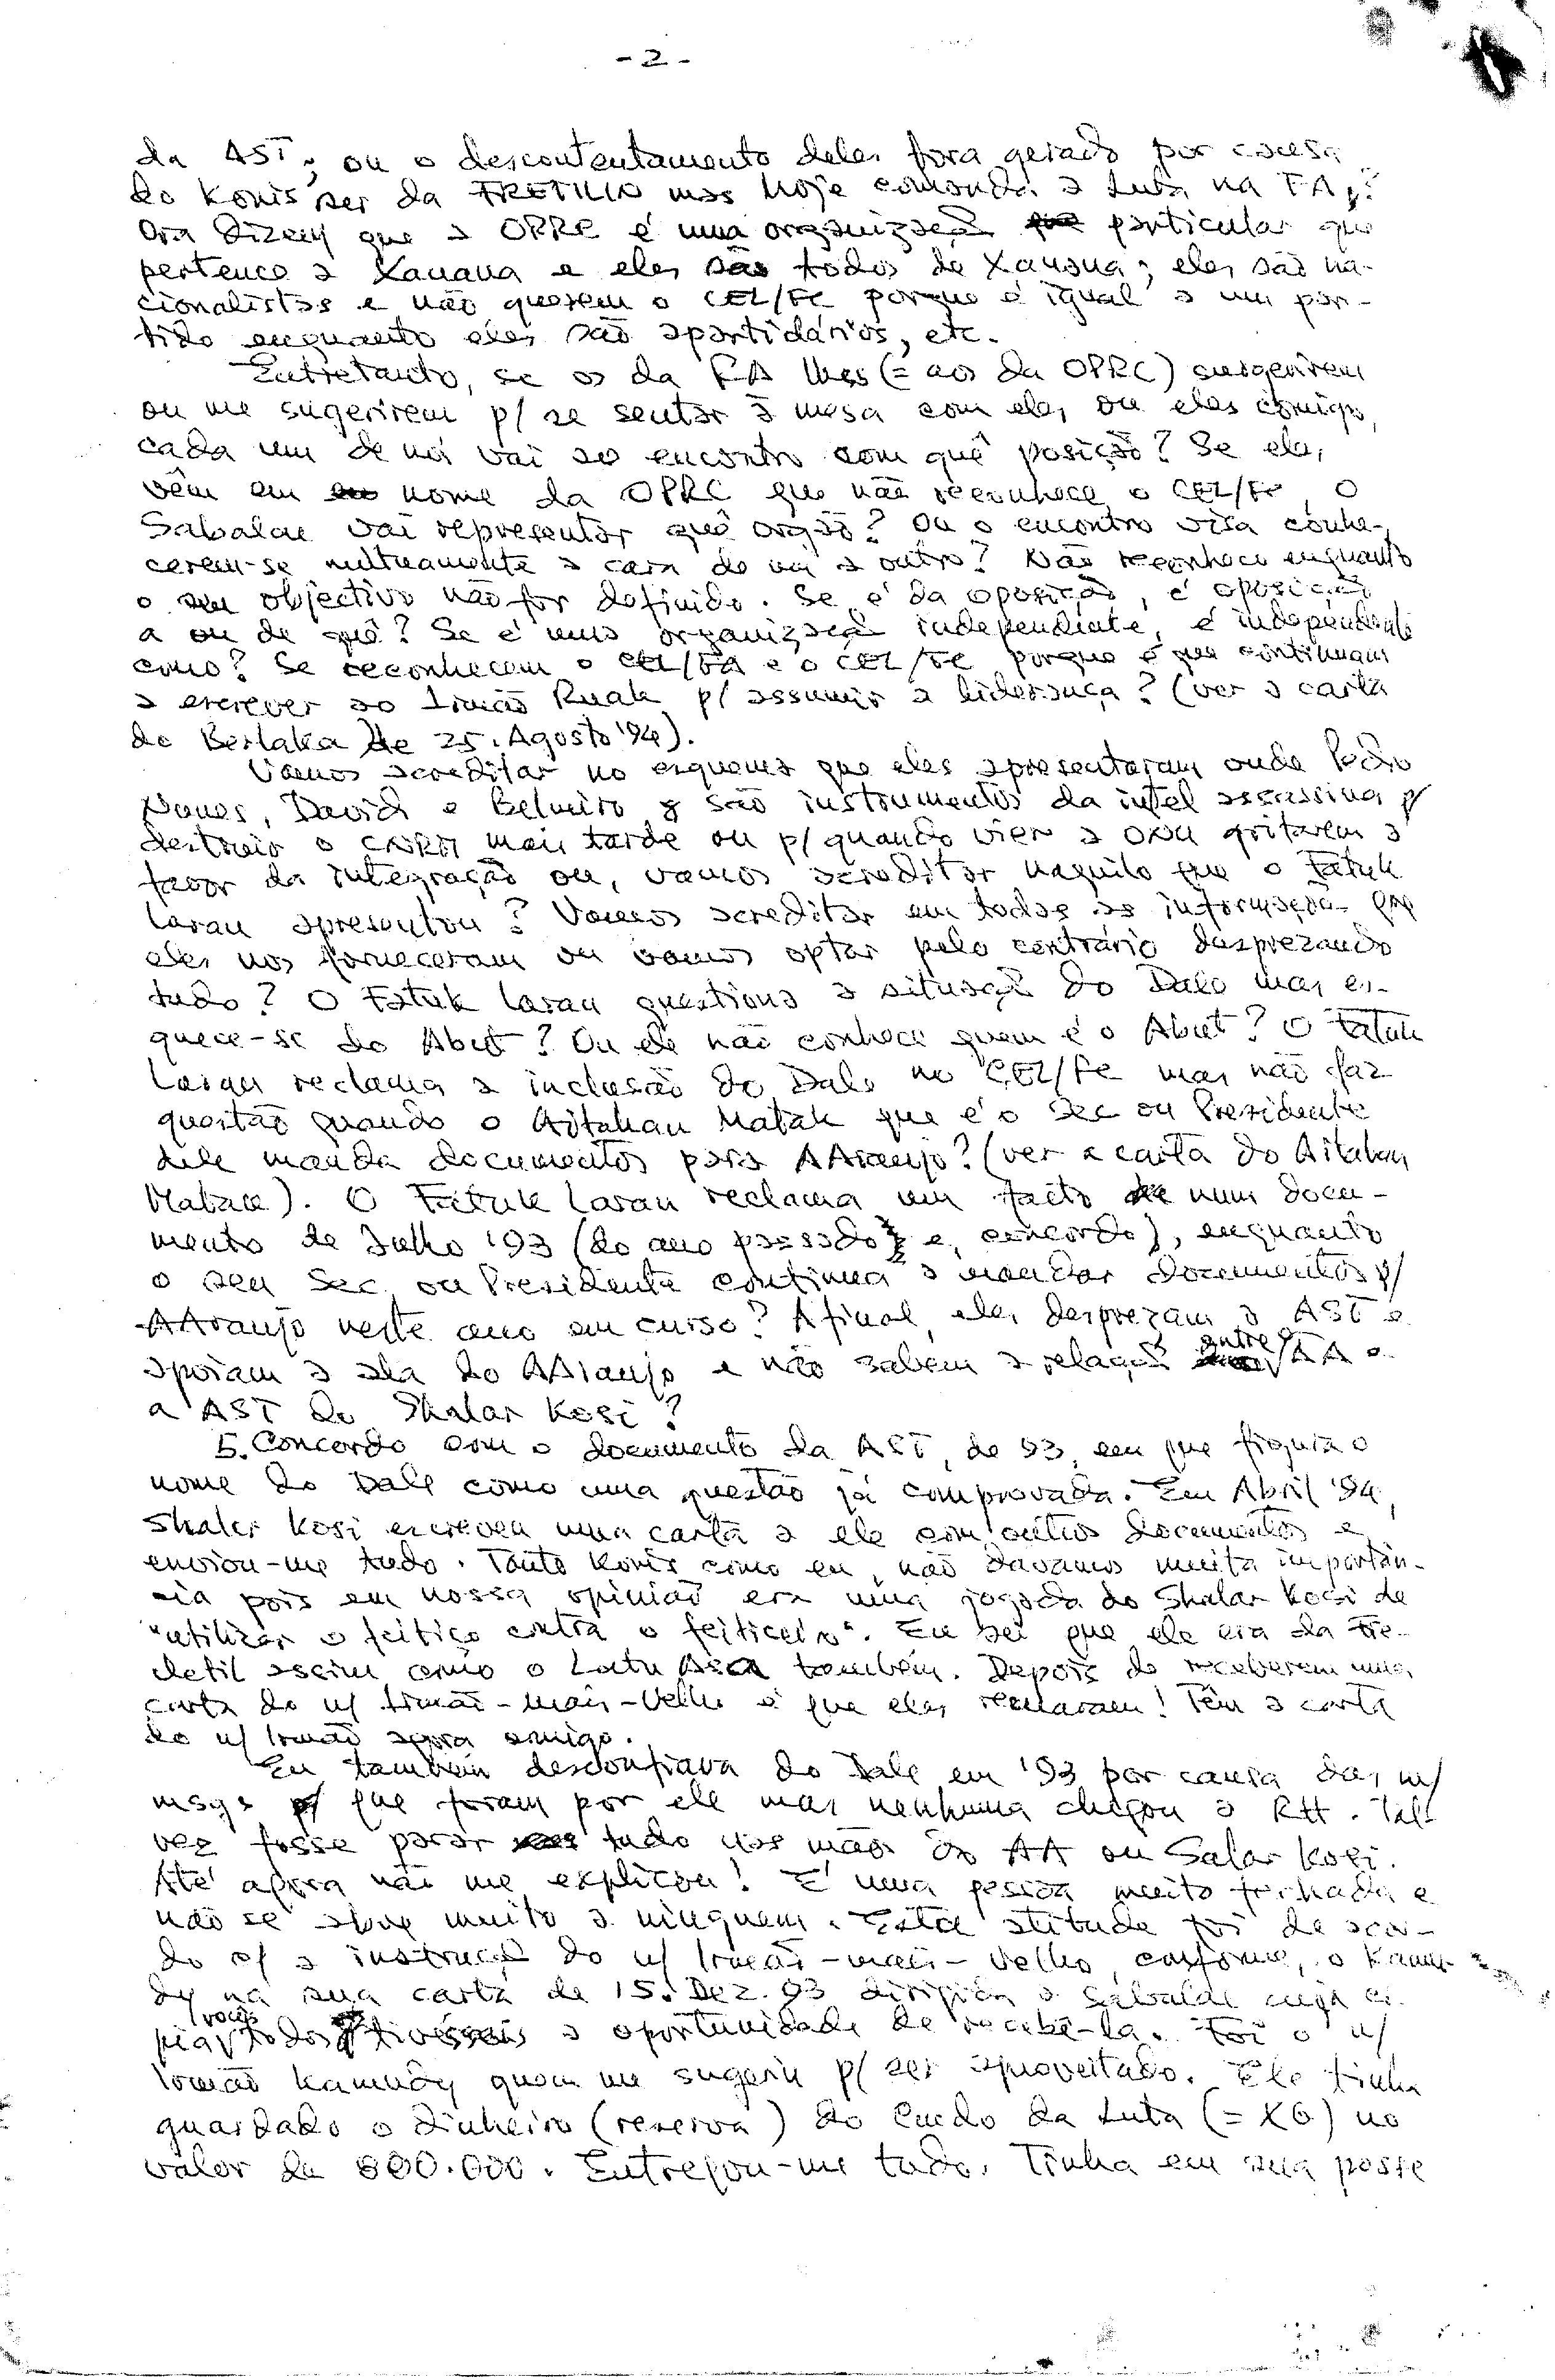 - 2 -
da AST; ou o descontentamento deles fora gerado por causa
do Konis ser da FRETILIN mas hoje comanda a Luta na FA,?
Ora dizem que a OPRC é uma organização particular que
pertence a Xanana e eles são todos de Xanana; eles são na-
cionalistas e não querem o CEL/FC porque é igual a um par-
tido enquanto eles são apartidários, etc.
Entretanto, se os da FA lhes (= aos da OPRC) surgerirem
ou me sugerirem p/ se sentar à mesa com eles ou eles comigo,
cada um de nós vai ao encontro com quê posição? Se eles
vêm em nome da OPRC que não reconhece o CEL/FC, o
Sabalae vai representar quê orgão? Ou o encontro visa conhe-
cerem-se mutuamente a cara de um a outro? Não reconheço enquanto
o seu objectivo não for definido. Se é da oposição, é oposição
a ou de quê? Se é uma organização independente, é independente
como? Se reconhecem o CEL/FA e o CEL/FC porque é que continuam
a escrever ao Irmão Ruak p/ assumir a liderança? (ver a carta
de Berlaka de 25. Agosto '94).
Vamos acreditar no esquema que eles apresentaram onde Pedro
Nunes, David e Belmiro são instrumentos da intel assassina p/
destruir o CNRM mais tarde ou p/ quando vier a ONU gritarem a
favor da integração ou, vamos acreditar naquilo que o Fatuk
Laran apresentou? Vamos acreditar em todas as informações que
eles nos forneceram ou vamos optar pelo contrário desprezando
tudo? O Fatuk Laran questiona a situação do Dale mas es-
quece-se do Abut? Ou ele não conhece quem é o Abut? O Fatuk
Laran reclama a inclusão do Dale no CEL/FC mas não faz
questão quando o Aitahan Matak que é o Sec ou Presidente
dele manda documentos para AAraujo? (ver a carta do Aitahan
Matak). O Fatuk Laran reclama um facto num docu-
mento de Julho '93 (do ano passado e, concordo), enquanto
o seu Sec ou Presidente continua a mandar documentos p/
AAraujo neste ano em curso? Afinal, eles desprezam a AST e
apoiam a ala do AAraujo e não sabem a relação entre AA e
a AST do Shalar Kosi?
5. Concordo com o documento da AST, de 93, em que figura o
nome do Dale como uma questão já comprovada. Em Abril '94,
Shalar Kosi escreveu uma carta a ele com outros documentos e
enviou-me tudo. Tanto Konis como eu, não davamos muita importân-
cia pois em nossa opinião era uma jogada do Shalar Kosi de
"utilizar o feitiço contra o feiticeiro". Eu sei que ele era da Fre-
detil assim como o Latu Asa tambêm. Depois de receberem uma
carta do n/ Irmão-mais-Velho é que eles reclamam! Têm a carta
do n/ Irmão amigo.
Eu também desconfiava do Dale em '93 por causa das m/
msgs que foram por ele mas nenhuma chegou a RH. Tal-
vez fosse parar tudo nas mãos do AA ou Salar Kosi.
Até agora não me explicou! É uma pessoa muito fechada e
não se abre muito a ninguem. Esta atitude foi de acor-
do c/ a instrução do n/ Irmão-mais-Velho, conforme, o Kamu-
dy na sua carta de 15. Dez. 93 dirigida a Sabalae cuja có-
pia vocês todos tivessem a oportunidade de recebê-la. Foi o n/
Irmão Kamudy quem me sugeriu p/ ser aproveitado. Ele tinha
guardado o dinheiro (reserva) do Cmdo da Luta (= XG) no
valor de 800.000. Entregou-me tudo. Tinha em sua posse